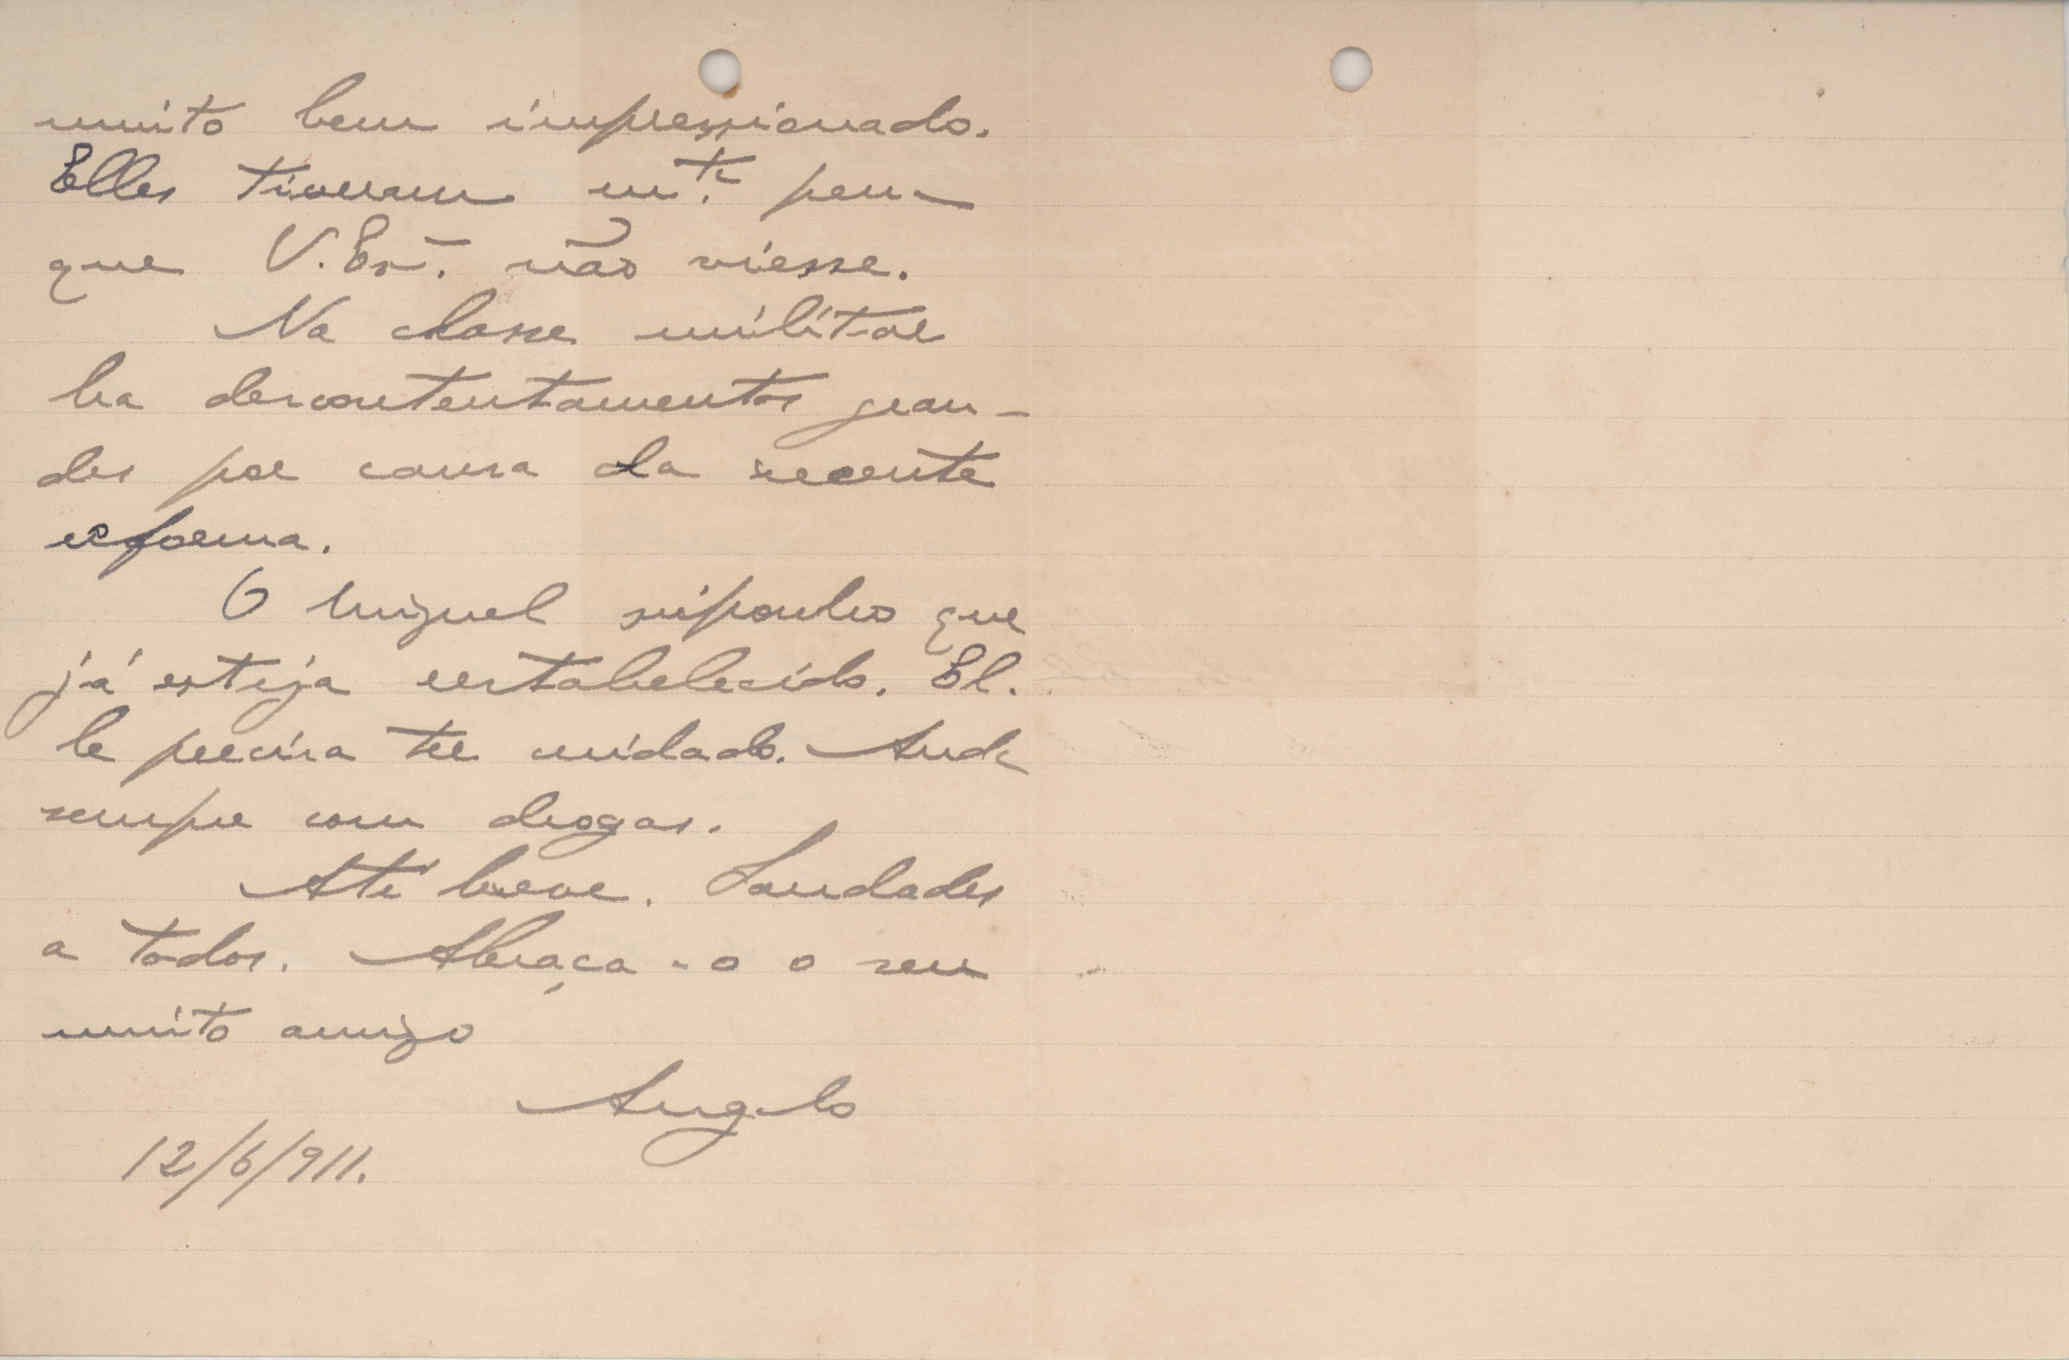 muito bem impressionado.
Elles tiveram mta. pena
que V. Exa. não viesse.
Na classe militar
ha descontentamentos gran-
des por causa da recente
reforma.
O Miguel supponho que
já esteja restabelecido. El-
le precisa ter cuidado. Anda
sempre com drogas.
Até breve. Saudades
a todos. Abraça-o o seu
muito amigo
Angelo
12/6/911.